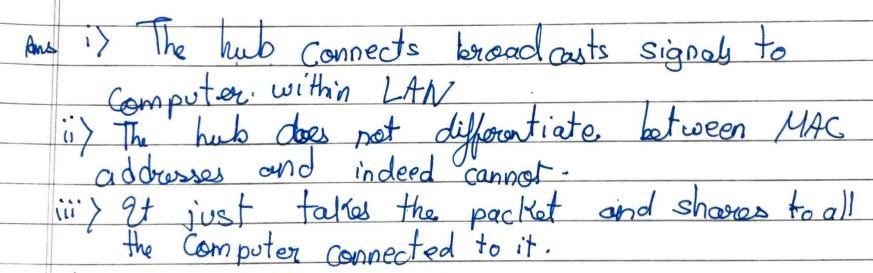 Ans i> The hub connects broadcasts signals to
Computer. within LAN
ii> The hub does not differentiate between MAC
addresses and indeed cannot.
iii> It just takes the packet and shares to all
the Computer connected to it.